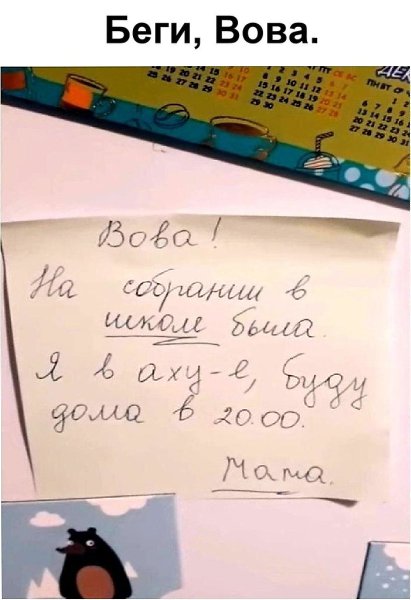 Беги, Вова.
Вова!
На собрании в
школе была.
Я в аху-е, буду
дома в 20.00.
Мама.